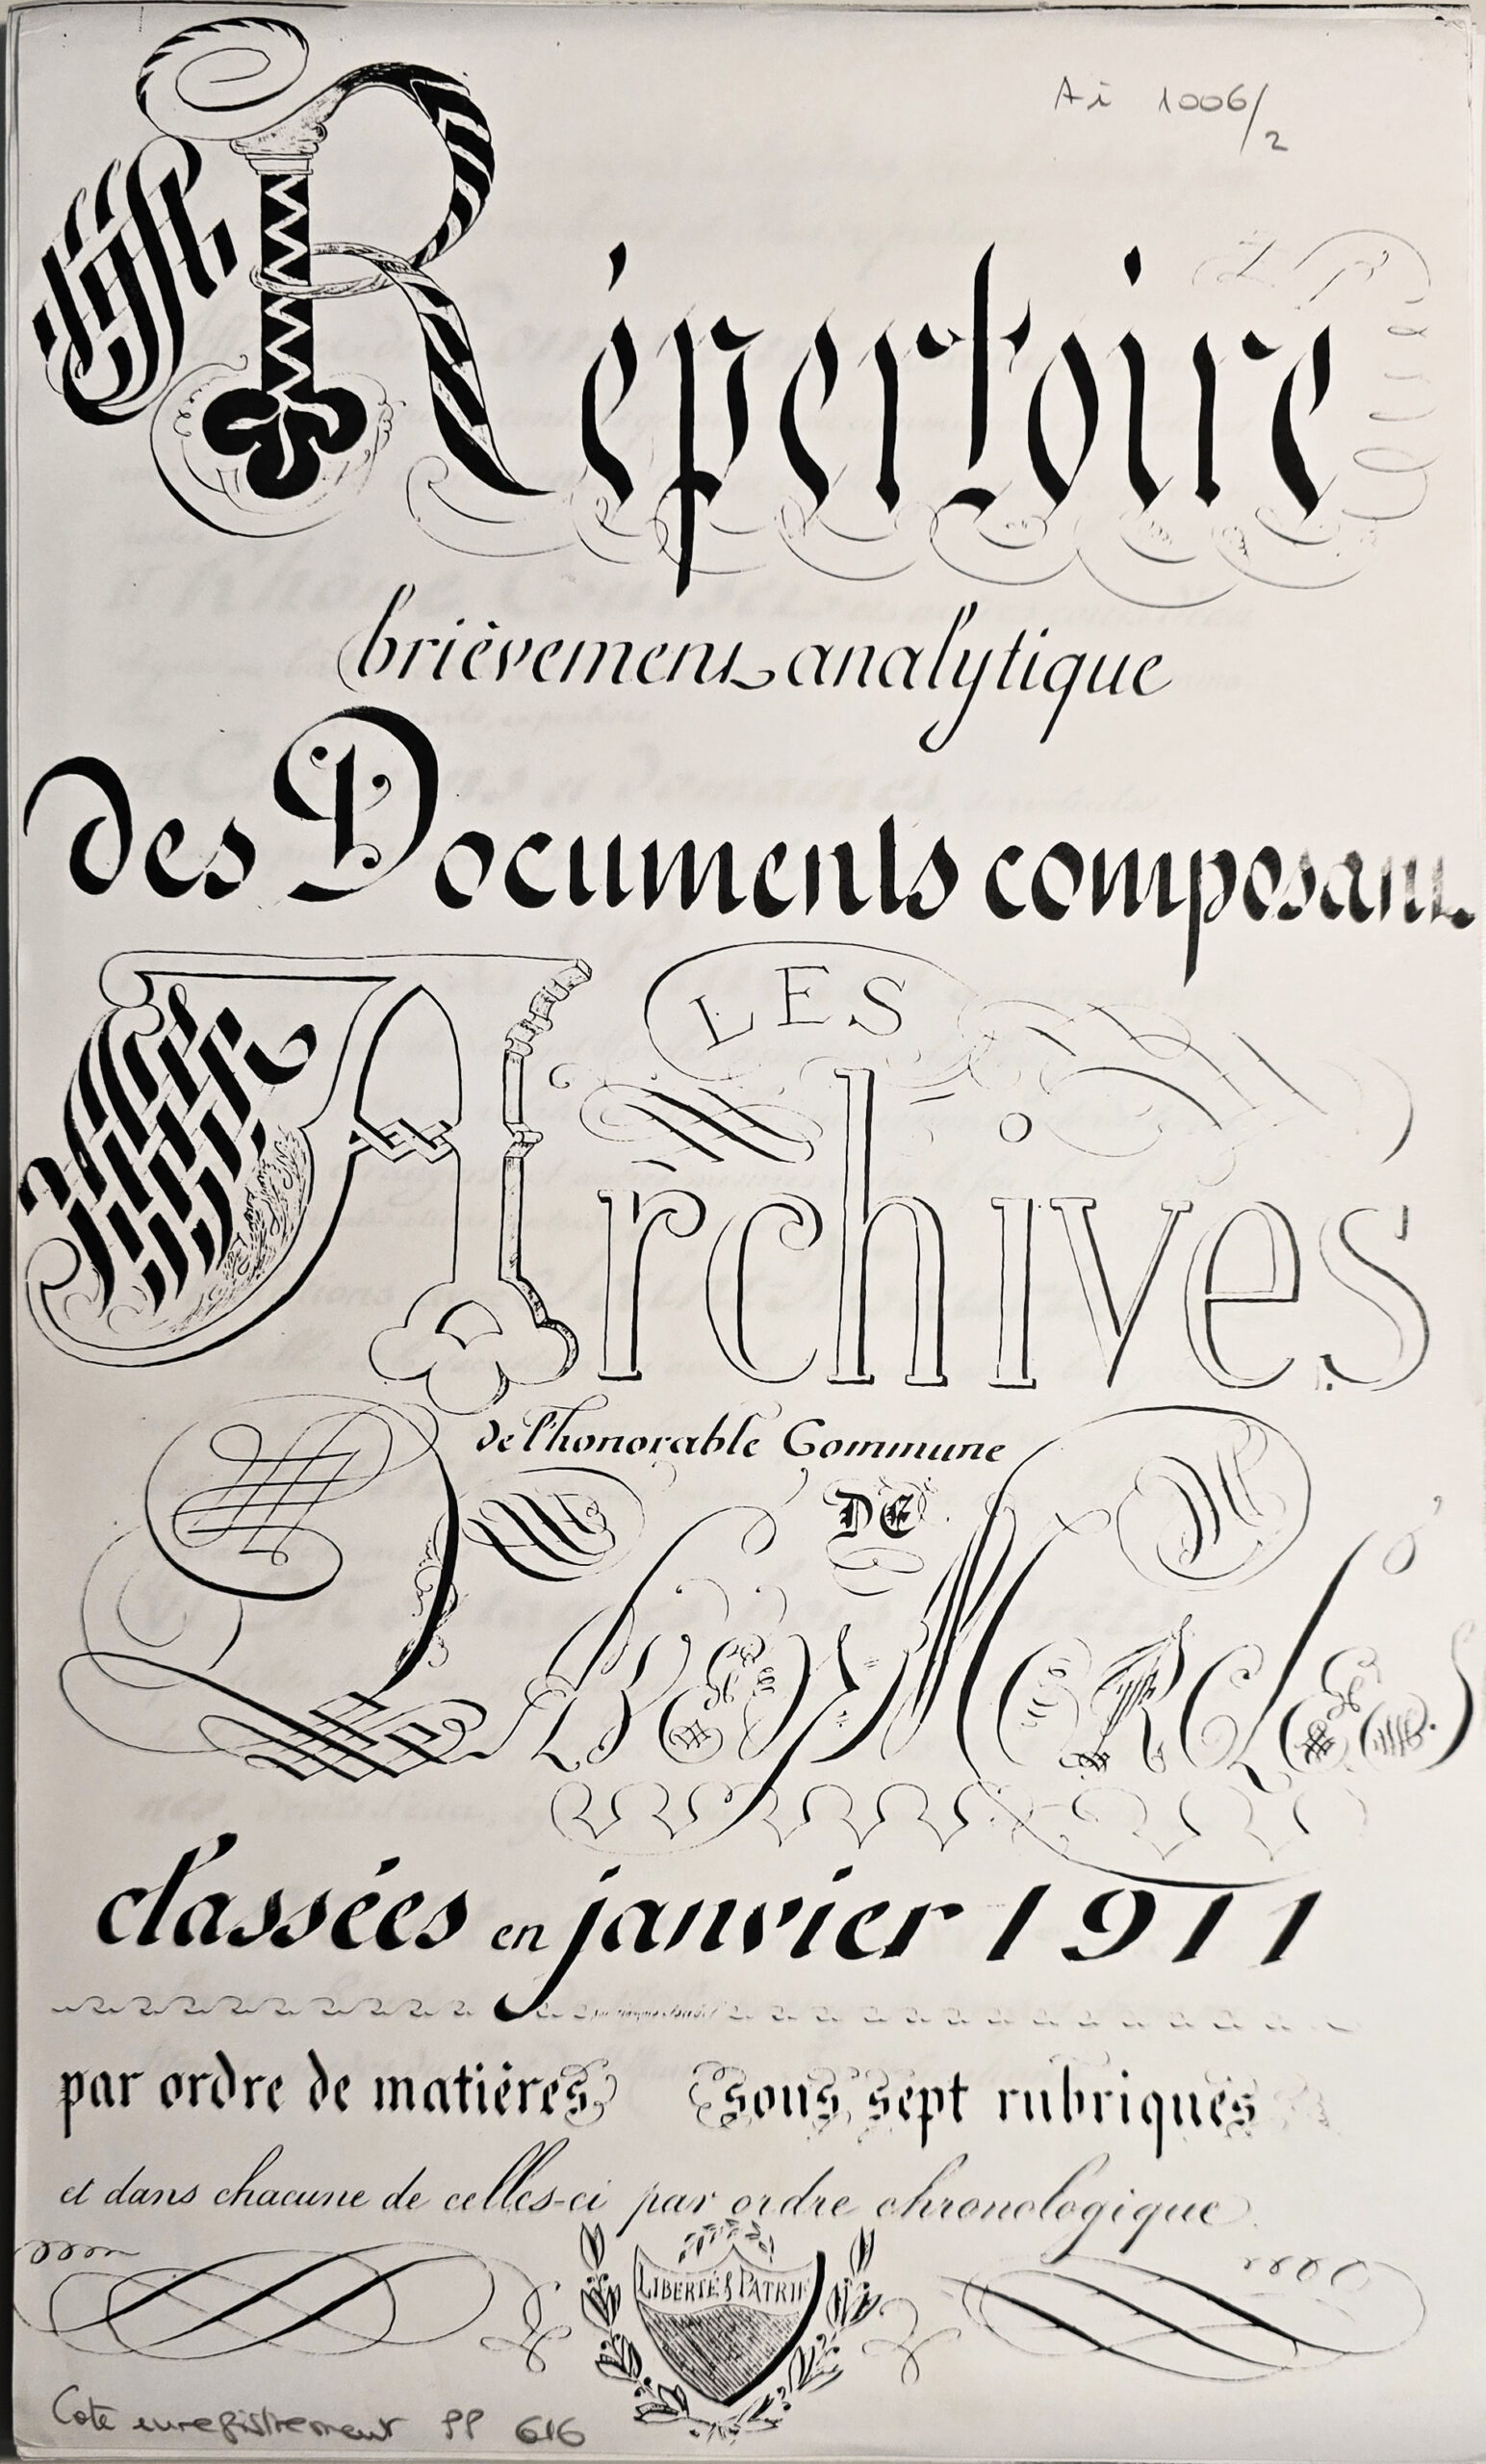 Ai 1006/2
Répertoire
brièvement analytique
des Documents composant
LES
Archives
de l'honorable Commune
DE
classées en janvier 1911
par ordre de matières sous sept rubriques
et dans chacune de celles-ci par ordre chronologique.
LIBERTÉ & PATRIE
Cote enregistrement PP 616